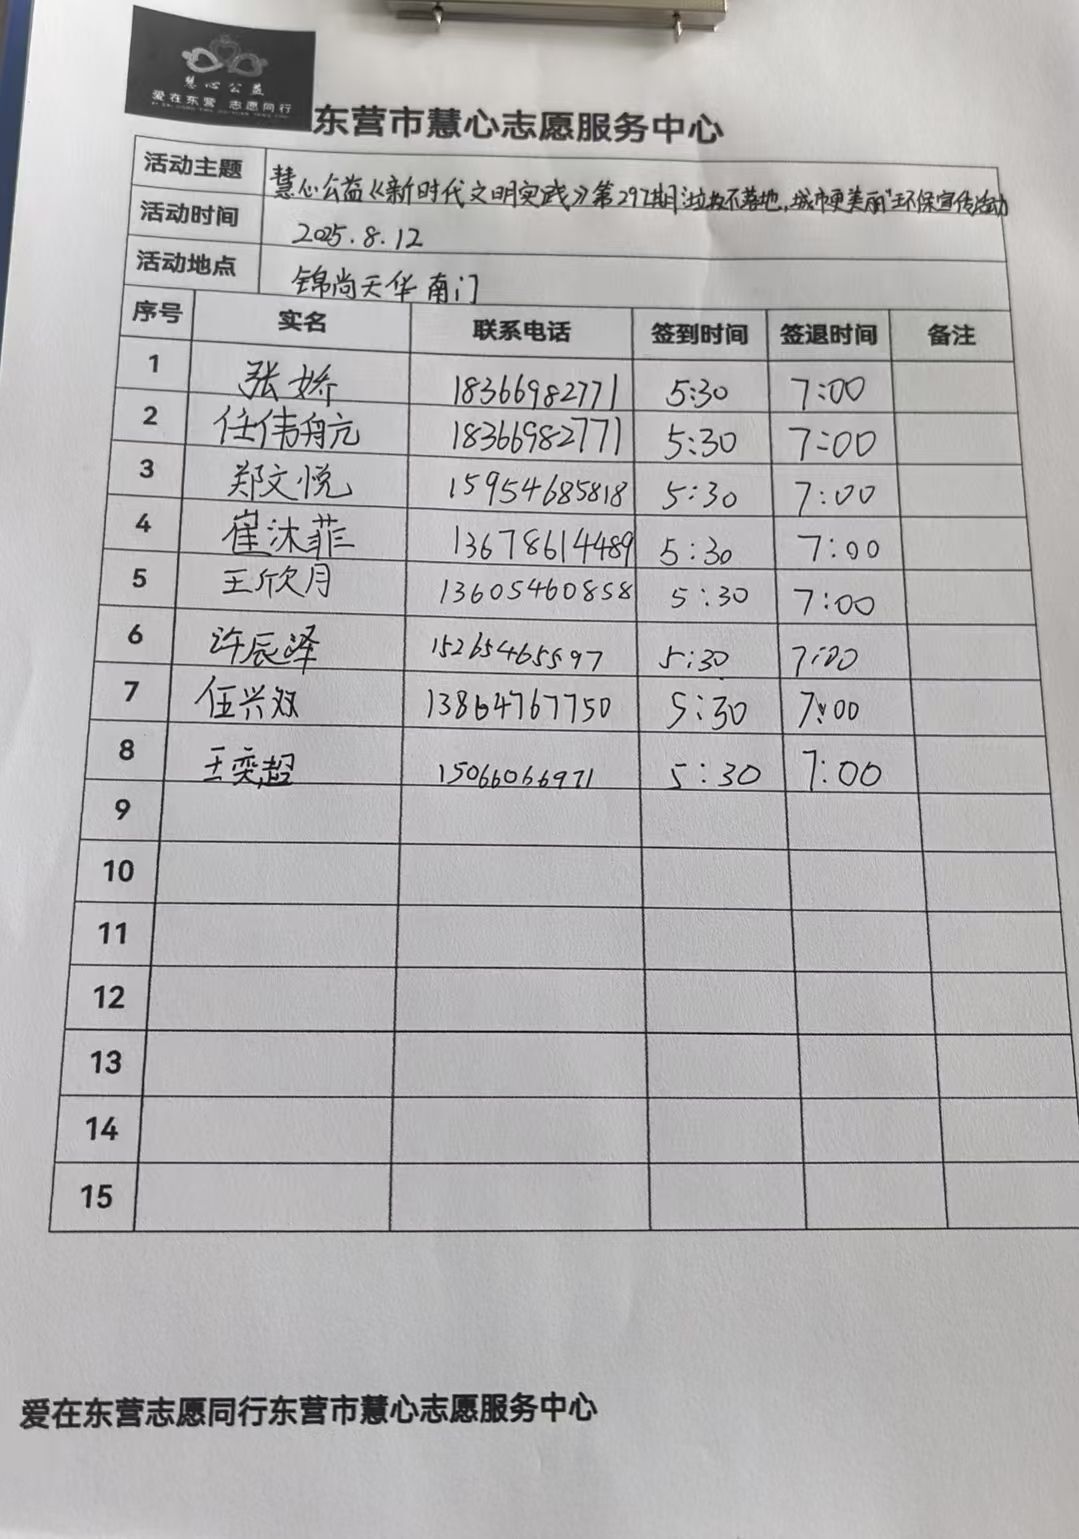 慧心公益
爱在东营 志愿同行
东营市慧心志愿服务中心
活动主题 慧心公益《新时代文明实践》第297期"垃圾不落地,城市更美丽"环保宣传活动
活动时间 2025.8.12
活动地点 锦尚天华 南门
序号 实名 联系电话 签到时间 签退时间 备注
1 张娇 18366982771 5:30 7:00
2 任伟航 18366982771 5:30 7:00
3 郑文悦 15954685818 5:30 7:00
4 崔沐菲 13678614489 5:30 7:00
5 王欣月 13605460858 5:30 7:00
6 许辰泽 15265465597 5:30 7:00
7 伍兴双 13864767750 5:30 7:00
8 王奕超 15066066971 5:30 7:00
9
10
11
12
13
14
15
爱在东营志愿同行东营市慧心志愿服务中心